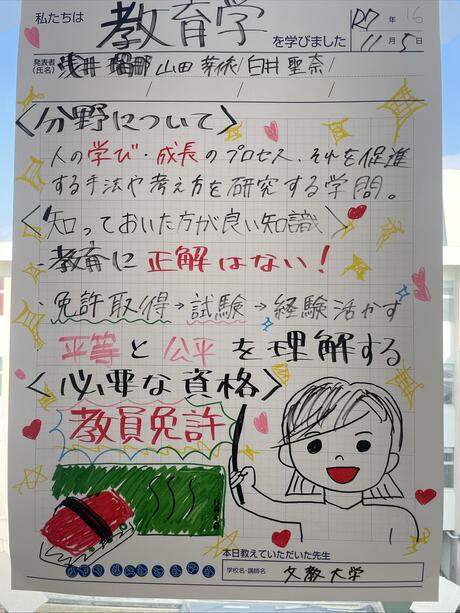 私たちは 教育学 を学びました R7年 11月5日 16
発表者(氏名) 浅井 瑠那/山田 芽依/白井 聖奈/
〈分野について〉
人の学び・成長のプロセス、それを促進
する手法や考え方を研究する学問。
〈知っておいた方が良い知識〉
・教育に正解はない！
・免許取得→試験→経験活かす
平等と公平を理解する
〈必要な資格〉
教員免許
本日教えていただいた先生
学校名・講師名 文教大学